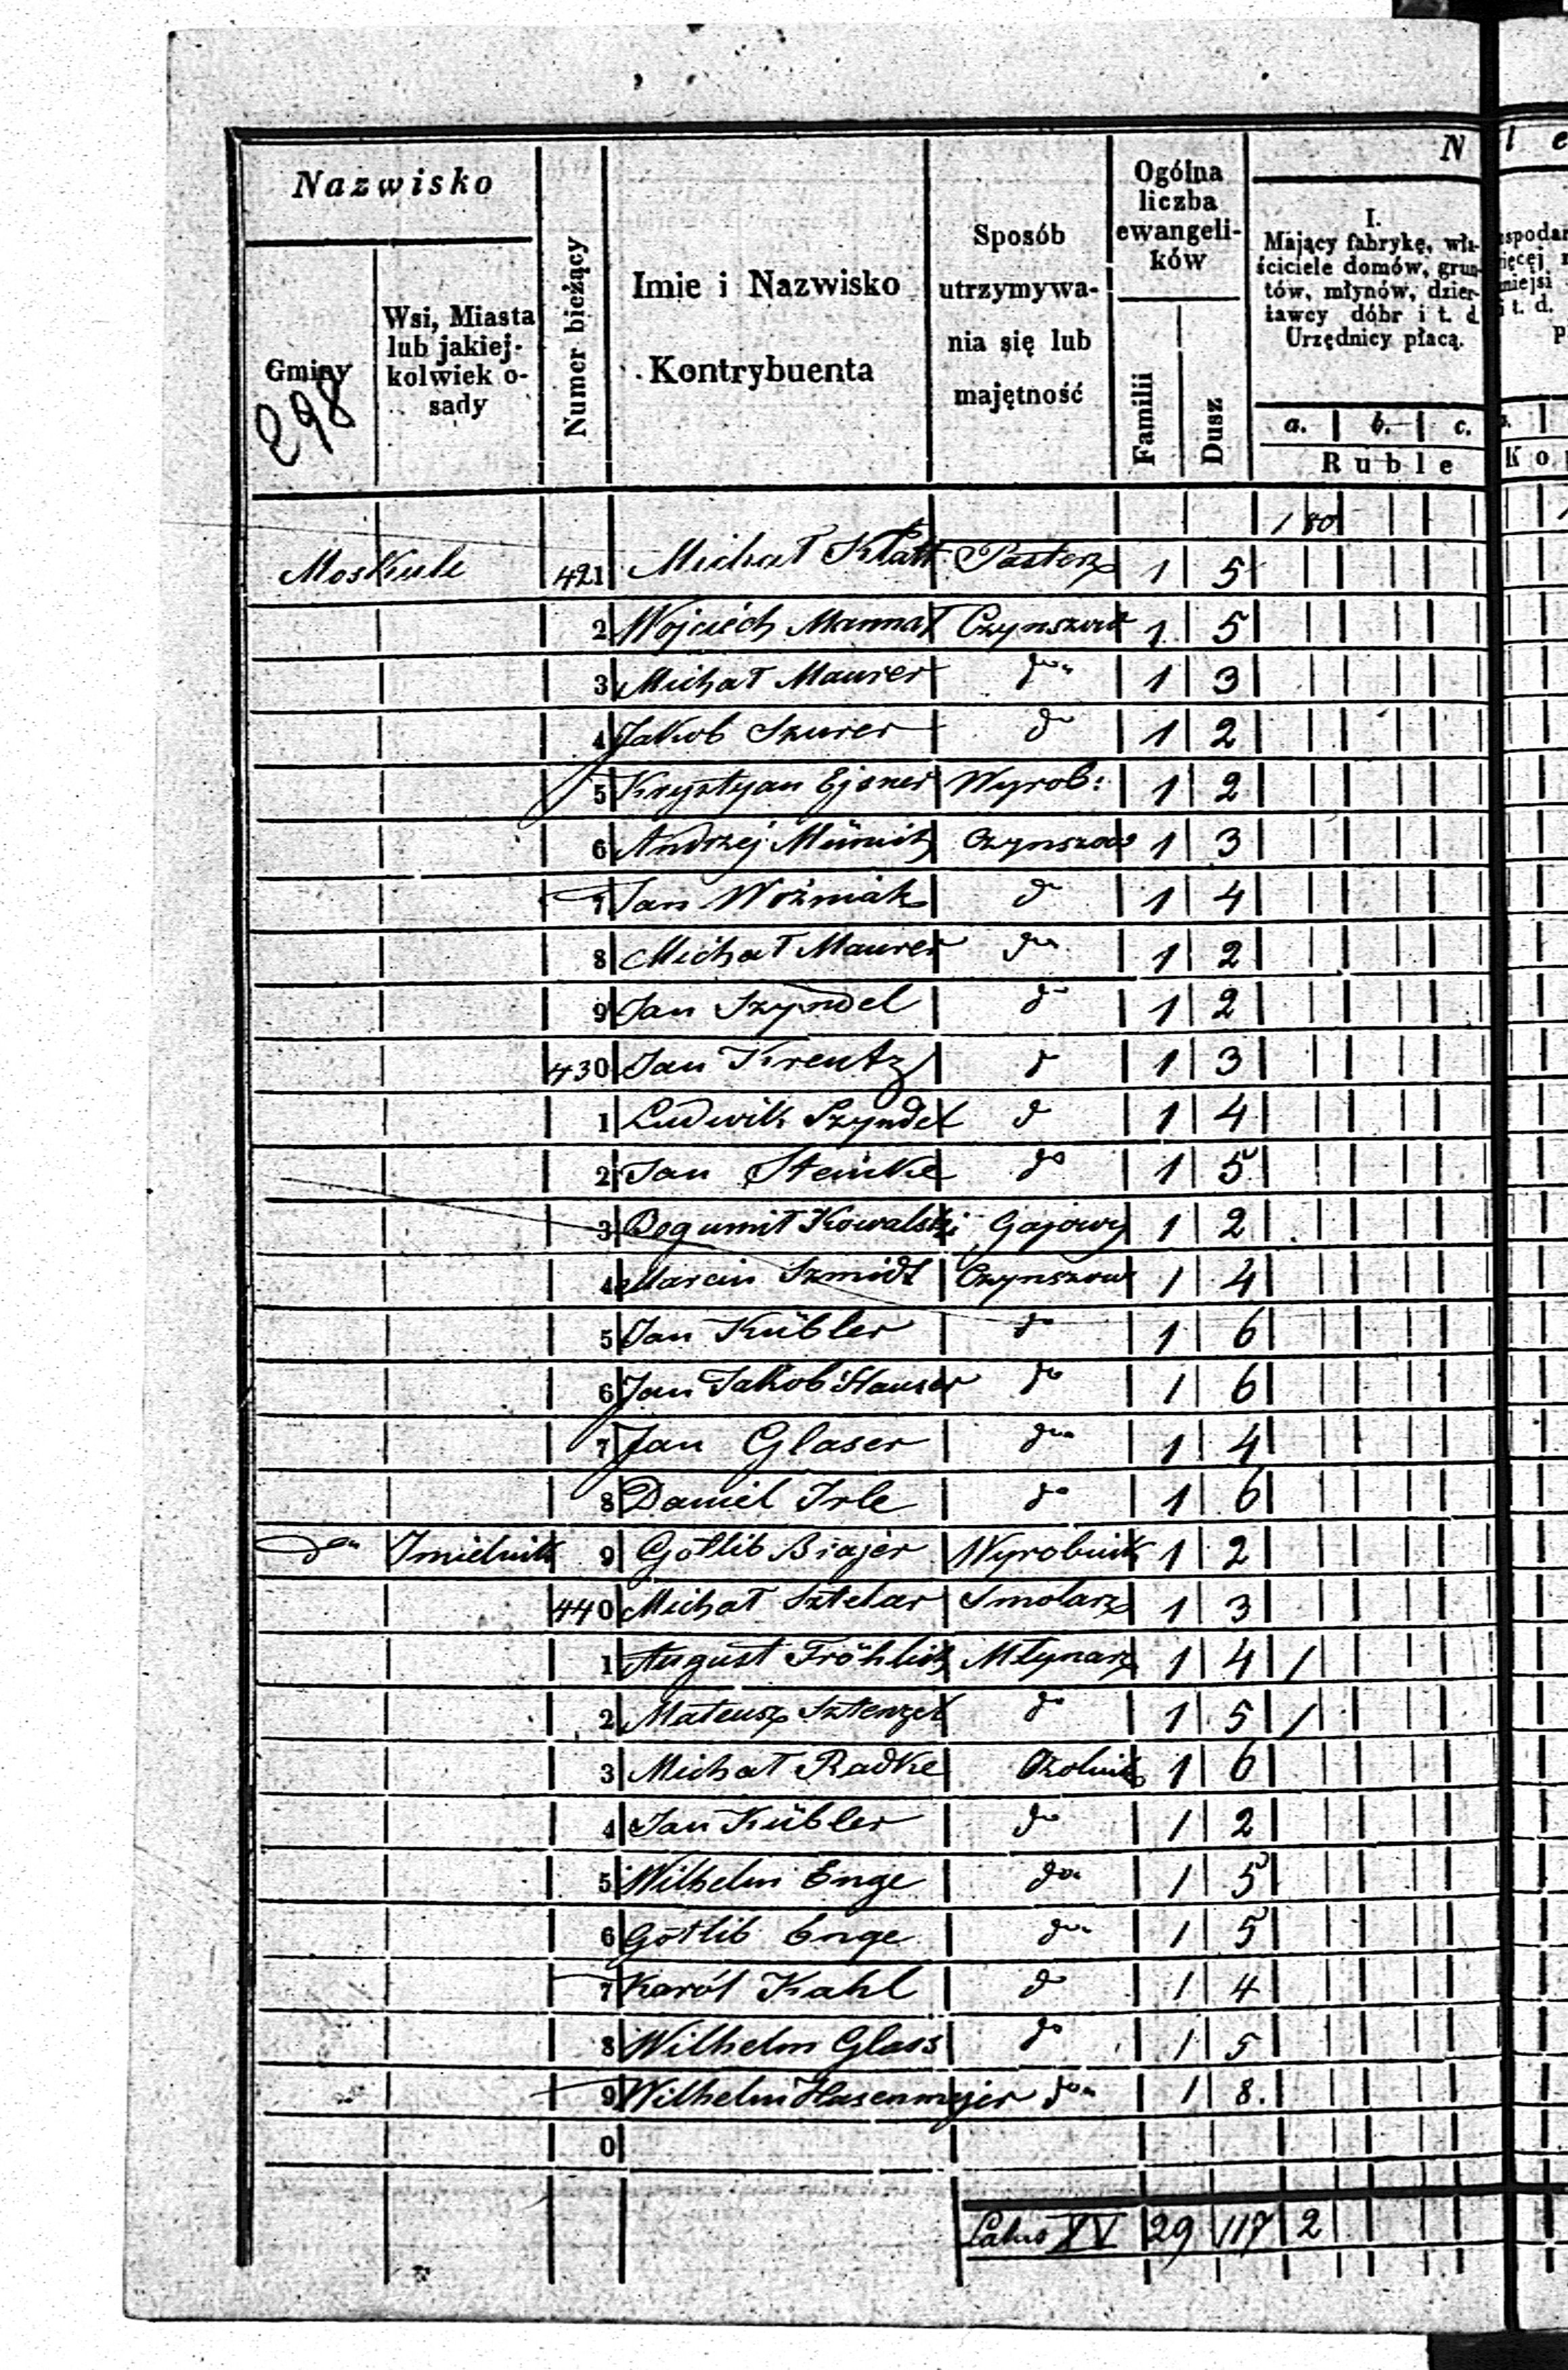 Nazwisko
Gminy
298
Wsi, Miasta
lub jakiej-
kolwiek o-
sady
Numer bieżący
Imie i Nazwisko
Kontrybuenta
Sposób
utrzymywa-
nia się lub
majętność
Ogólna
liczba
ewangeli-
ków
Familii
Dusz
N
I.
Mający fabrykę, wła-
ściciele domów, grun-
tów, młynów, dzier-
żawcy dóbr i t. d
Urzędnicy płacą.
a. b. c.
Ruble
1 80
Moskule 421 Michał Klatt Pasterz 1 5
2 Wojciech Mannał Czynszow 1 5
3 Michał Maurer don 1 3
4 Jakob Szurer do 1 2
5 Krysztyan Ejsner Wyrob: 1 2
6 Andrzej Münich Czynszow 1 3
7 Jan Woźniak do 1 4
8 Michał Maurer don 1 2
9 Jan Szyndel do 1 2
430 Jan Kreutz do 1 3
1 Ludwik Szyndel do 1 4
2 Jan Steinke do 1 5
3 Bogumił Kowalski Gajowy 1 2
4 Marcin Szmidt Czynszow 1 4
5 Jan Kübler do 1 6
6 Jan Jakob Hauser do 1 6
7 Jan Glaser don 1 4
8 Daniel Irle do 1 6
don Imielnik 9 Gotlib Biajer Wyrobnik 1 2
440 Michał Sztelar Smolarz 1 3
1 August Fröhlich Młynarz 1 4 1
2 Mateusz Sztenzel do 1 5 1
3 Michał Radke Okolnik 1 6
4 Jan Kübler do 1 2
5 Wilhelm Enge don 1 5
6 Gotlib Enge don 1 5
7 Karól Kahl do 1 4
8 Wilhelm Glass do 1 5
9 Wilhelm Hasenmejer don 1 8.
0
Latus XV 29 117 2